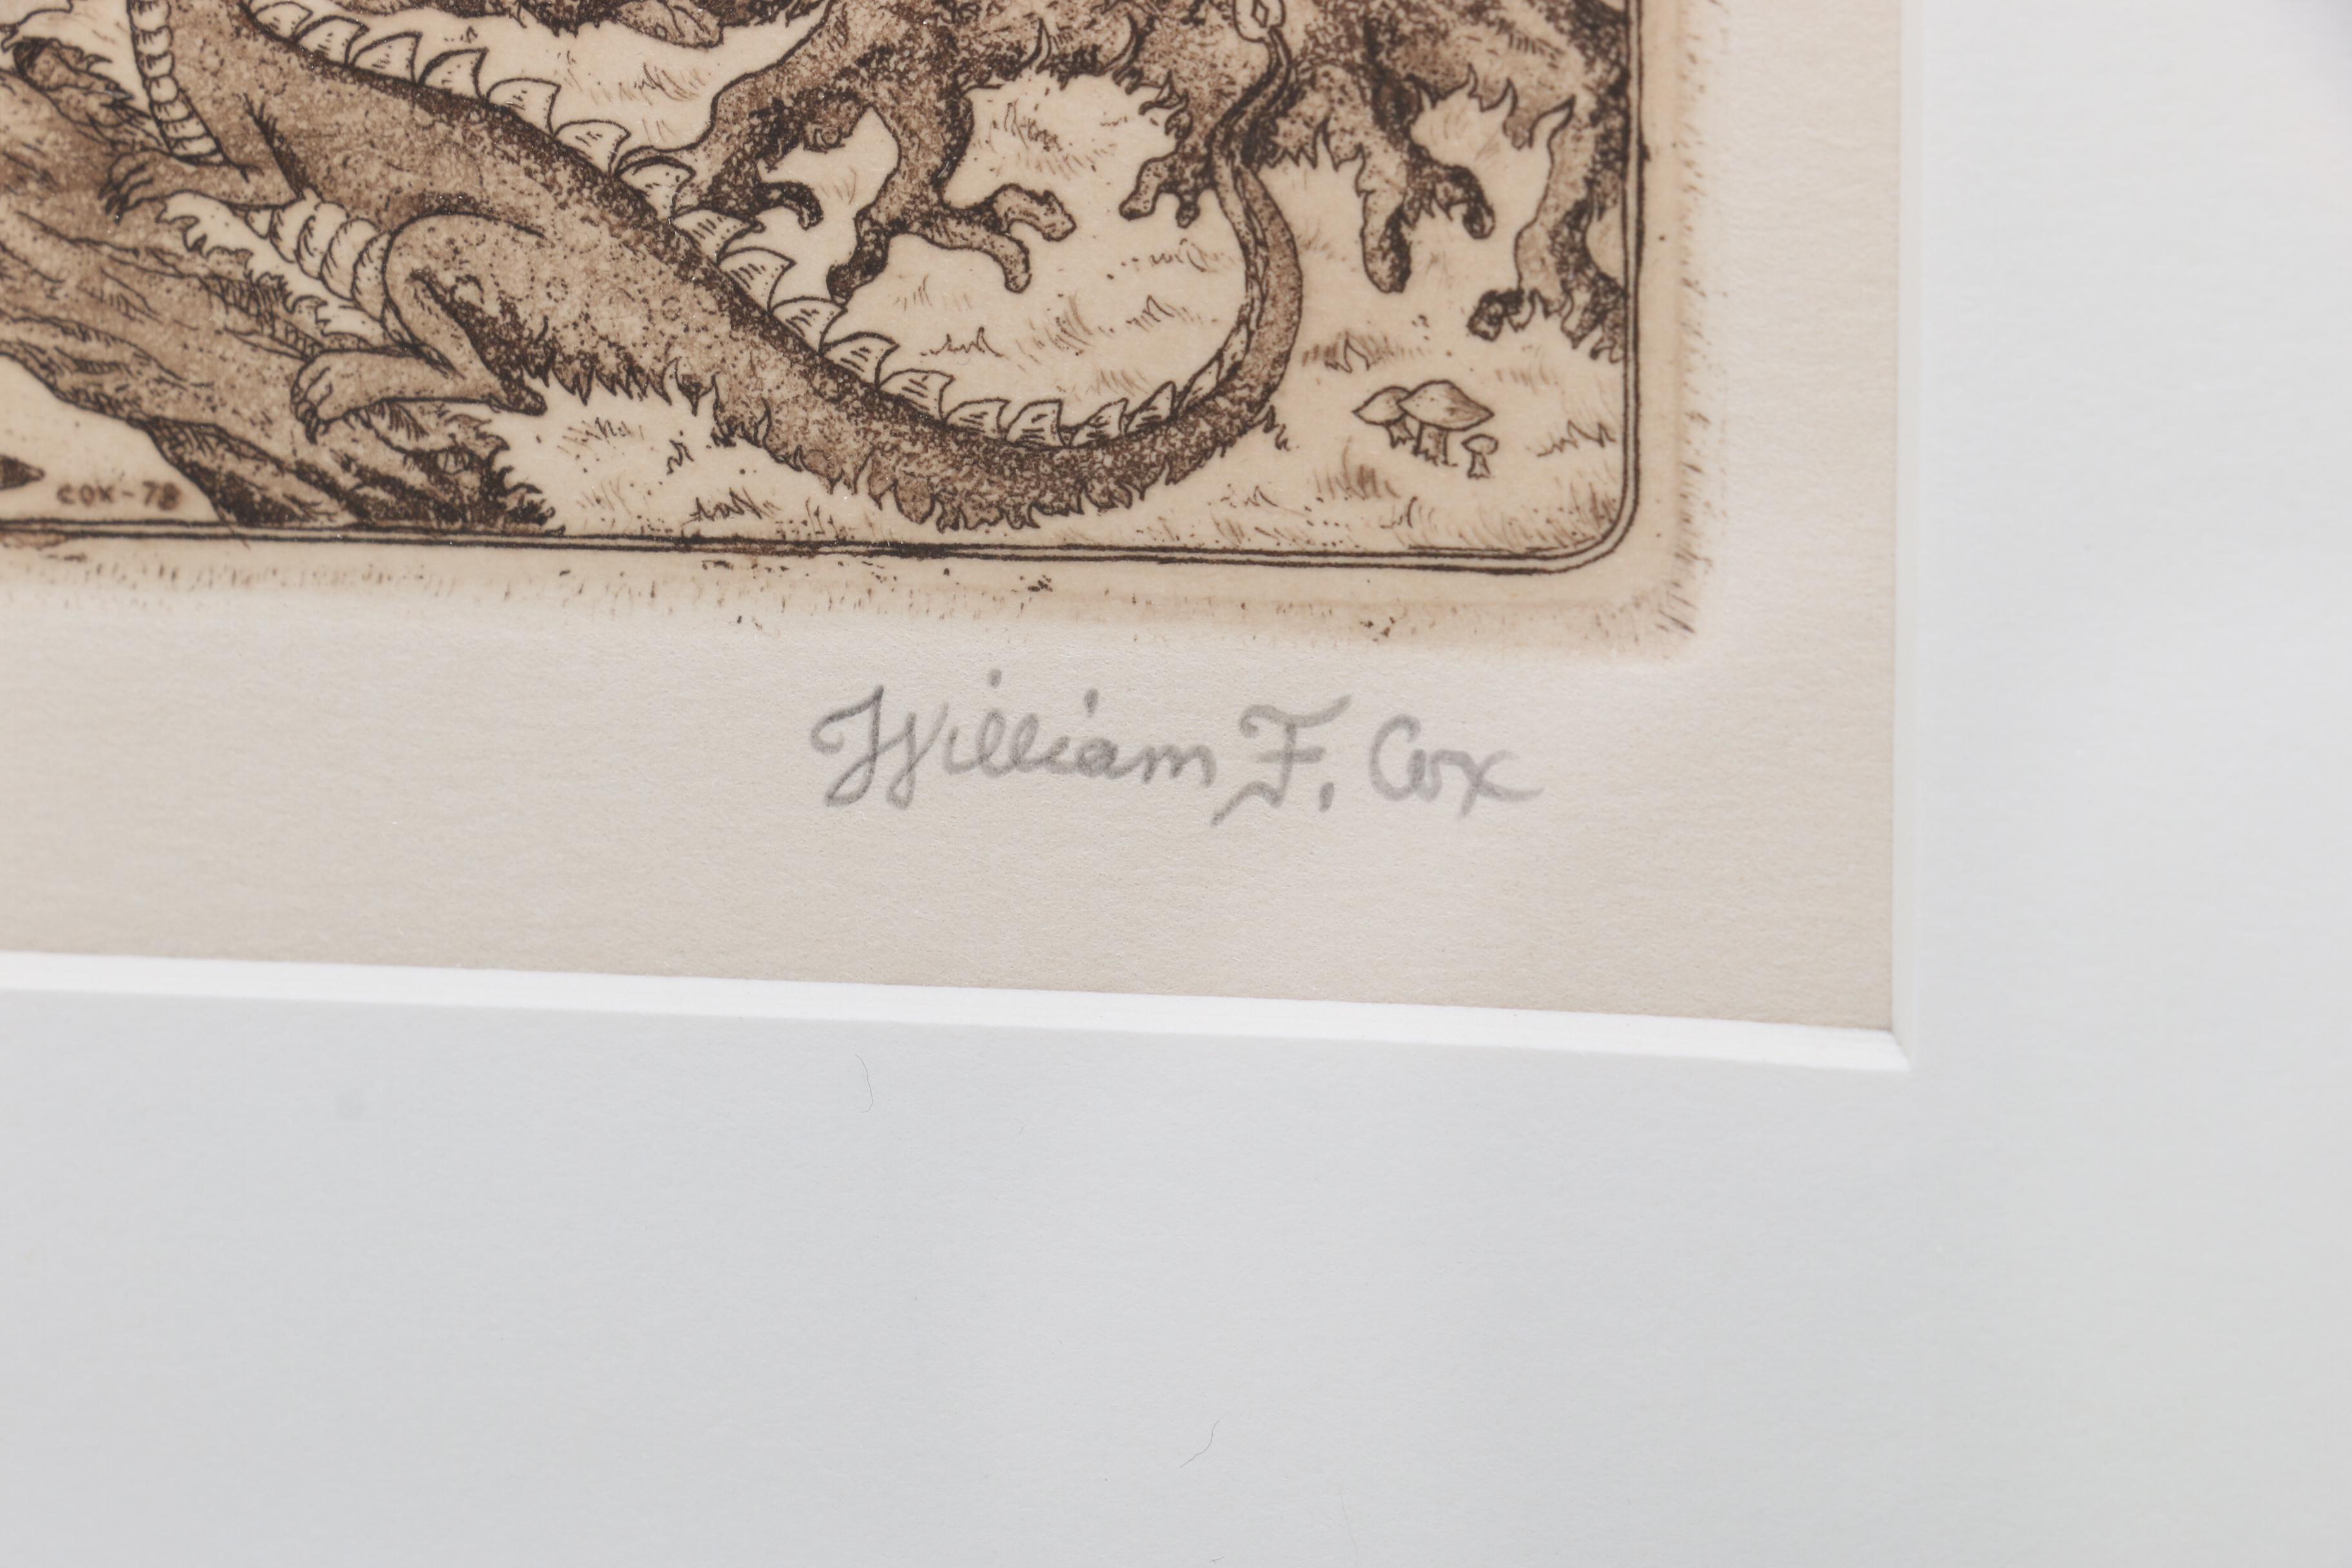 cox-78
William F. Cox